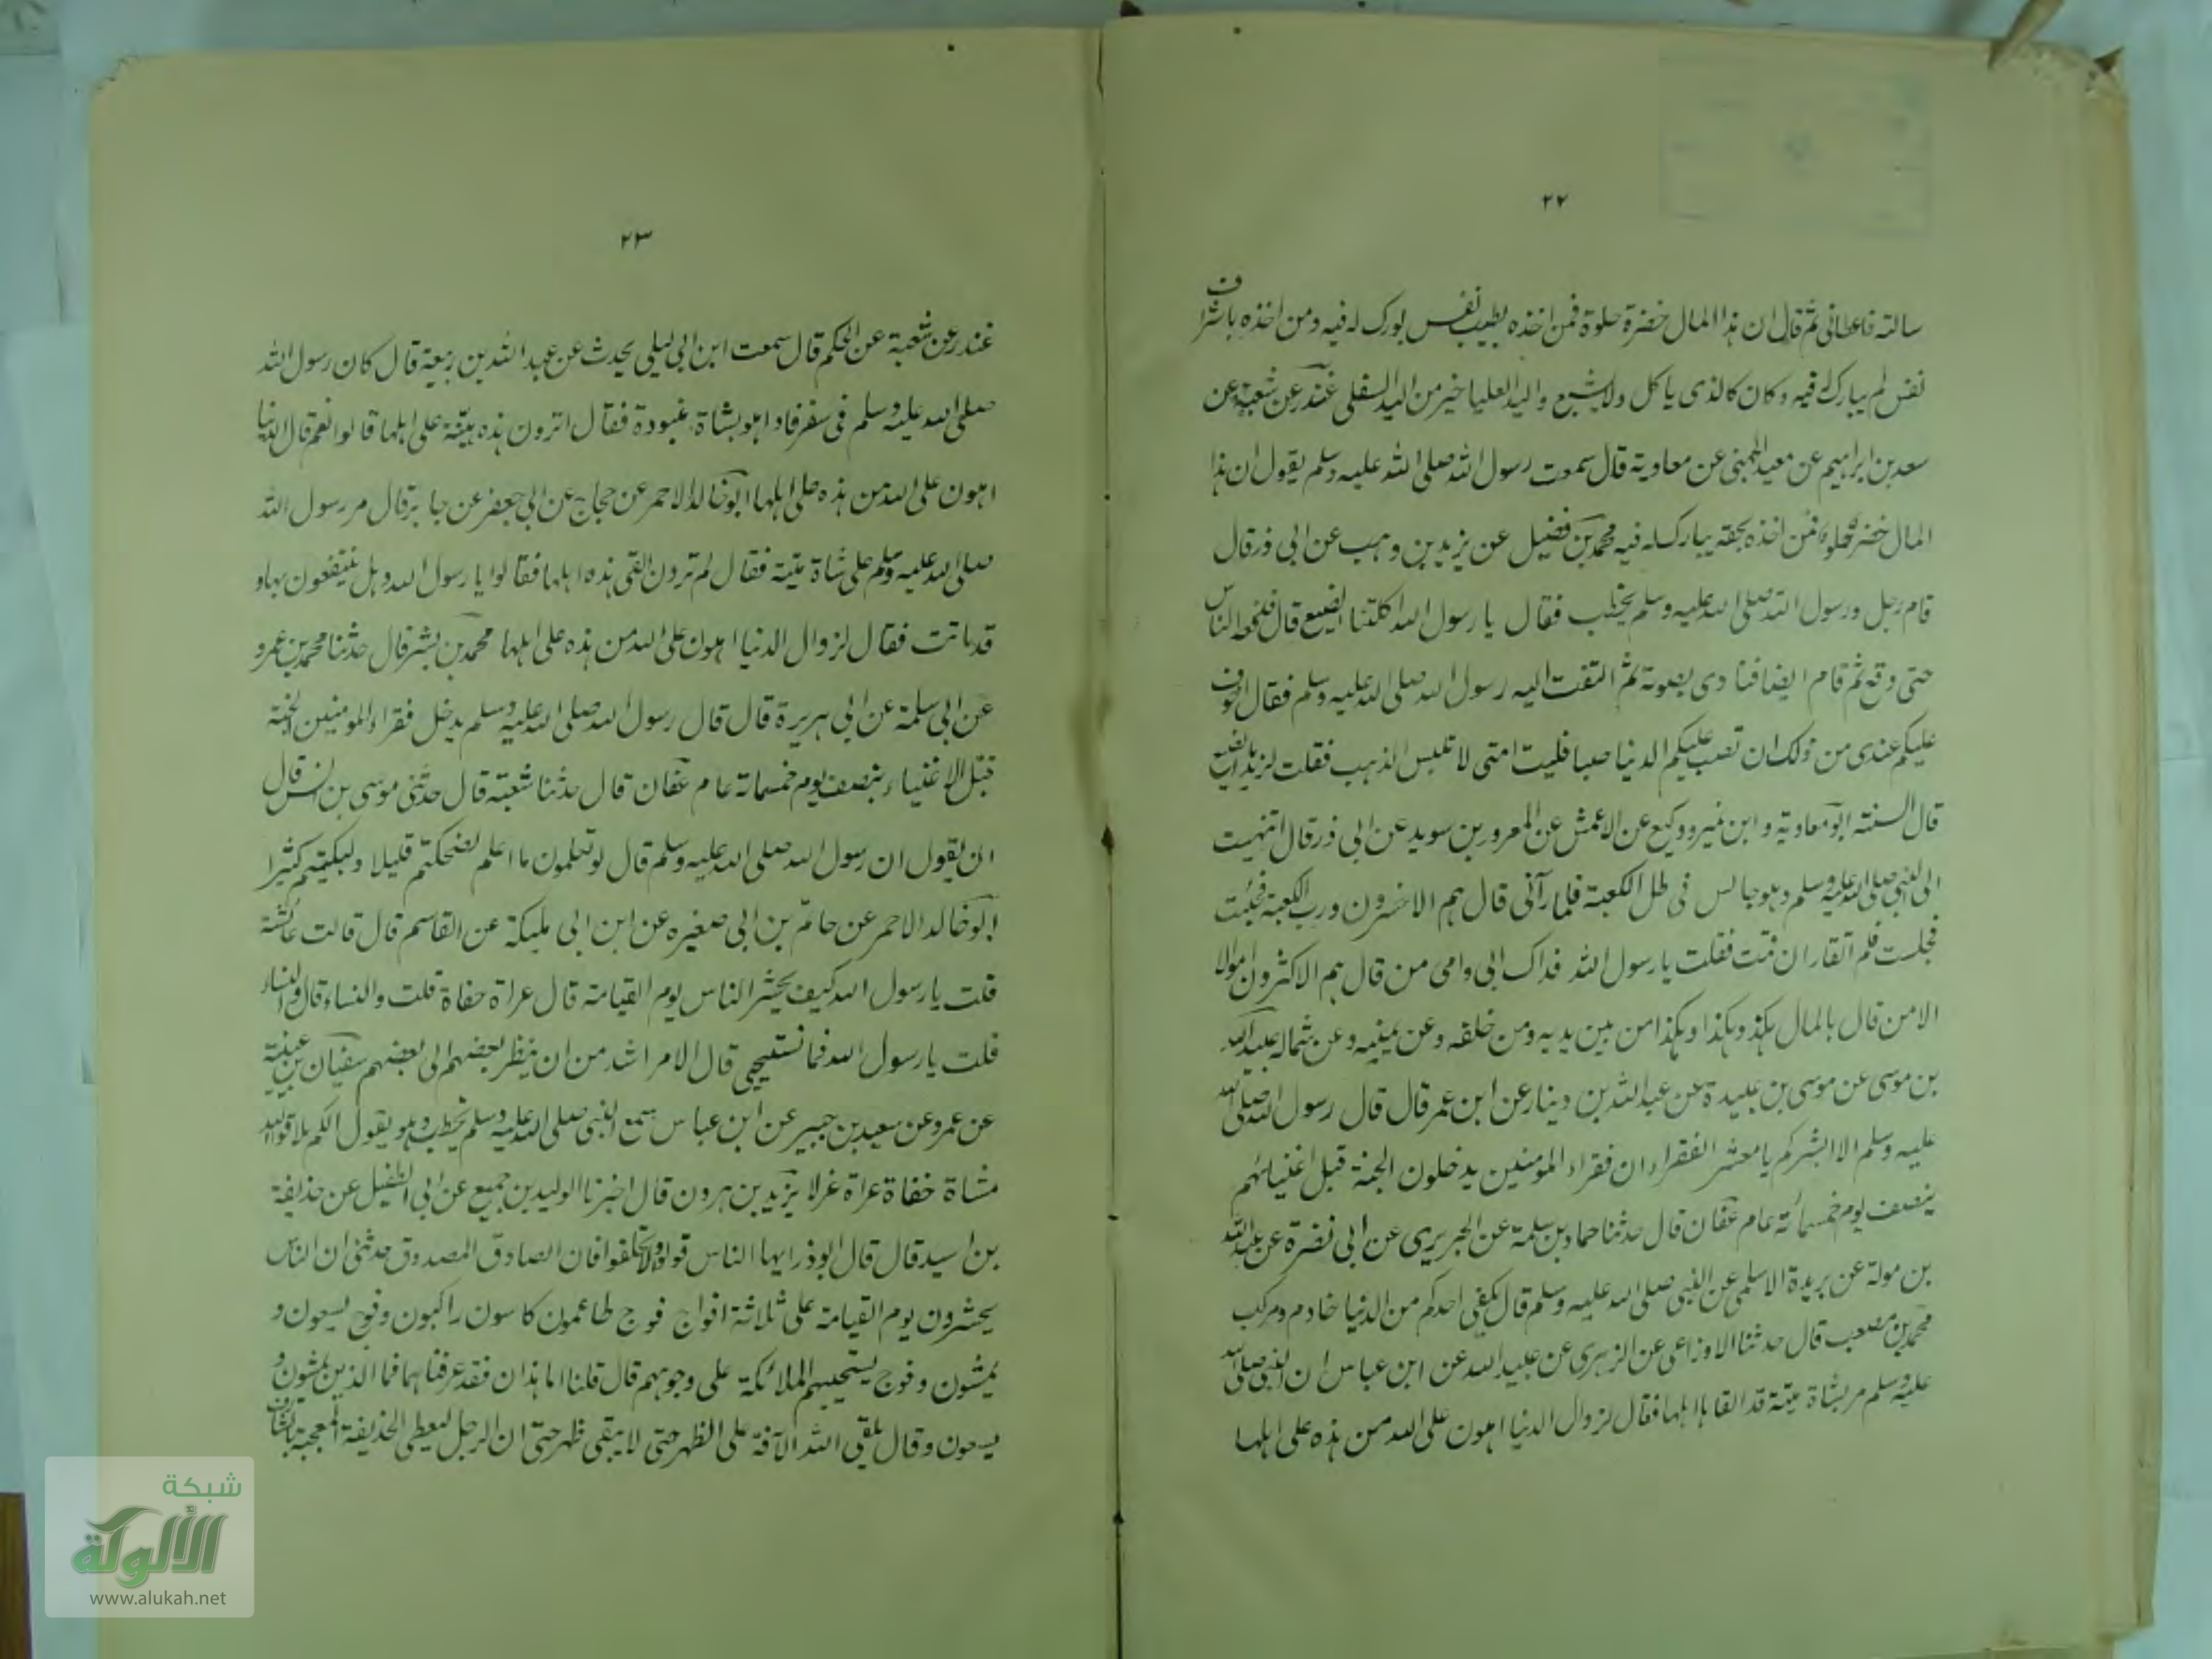 ٢٢
سالته فاعطانى ثم قال ان هذا المال خضرة حلوة فمن اخذه بطيب نفس بورك له فيه ومن اخذه باشراف
نفس لم يبارك فيه وكان كالذى ياكل ولا يشبع واليد العليا خير من اليد السفلى غندر عن شعبة عن
سعد بن ابراهيم عن معبد الجهنى عن معاوية قال سمعت رسول الله صلى الله عليه وسلم يقول ان هذا
المال خضر حلو فمن اخذه بحقه يبارك له فيه محمد بن فضيل عن يزيد بن وهب عن ابى ذر قال
قام رجل ورسول الله صلى الله عليه وسلم يخطب فقال يا رسول الله اكلتنا الضبع قال فدفعه الناس
حتى وقع ثم قام ايضا فنادى بصوته ثم التفت اليه رسول الله صلى الله عليه وسلم فقال اخوف
عليكم عندى من ذلك ان تصب عليكم الدنيا صبا فليت امتى لا تلبس الذهب فقلت لزيد ما الضبع
قال السنته ابو معاوية و ابن نمير ووكيع عن الاعمش عن المعرور بن سويد عن ابى ذر قال انتهيت
الى النبى صلى الله عليه وسلم وهو جالس فى ظل الكعبة فلما رآنى قال هم الاخسرون ورب الكعبة فجئت
فجلست فلم اتقار ان قمت فقلت يا رسول الله فداك ابى وامى من قال هم الاكثرون اموالا
الا من قال بالمال هكذا وهكذا وهكذا من بين يديه ومن خلفه وعن يمينه وعن شماله عبيد الله
بن موسى عن موسى بن عبيدة عن عبد الله بن دينار عن ابن عمر قال قال رسول الله صلى الله
عليه وسلم الا ابشركم يا معشر الفقراء ان فقراء المومنين يدخلون الجنة قبل اغنيائهم
بنصف يوم خمسمائة عام عفان قال حدثنا حماد بن سلمة عن الجريرى عن ابى نضرة عن عبد الله
بن مولة عن بريدة الاسلمى عن النبى صلى الله عليه وسلم قال يكفى احدكم من الدنيا خادم ومركب
محمد بن مصعب قال حدثنا الاوزاعى عن الزهرى عن عبيد الله عن ابن عباس ان النبى صلى الله
عليه وسلم مر بشاة ميتة قد القاها اهلها فقال لزوال الدنيا اهون على الله من هذه على اهلها
٢٣
غندر عن شعبة عن الحكم قال سمعت ابن ابى ليلى يحدث عن عبد الله بن ربيعة قال كان رسول الله
صلى الله عليه وسلم فى سفر فاذا هو بشاة منبوذة فقال اترون هذه هينة على اهلها قالوا نعم قال الدنيا
اهون على الله من هذه على اهلها ابو خالد الاحمر عن حجاج عن ابى جعفر عن جابر قال مر رسول الله
صلى الله عليه وسلم على شاة ميتة فقال لم ترون القى هذه اهلها فقالوا يا رسول الله وهل ينتفعون بها و
قد ماتت فقال لزوال الدنيا اهون على الله من هذه على اهلها محمد بن بشر قال حدثنا محمد بن عمرو
عن ابى سلمة عن ابى هريرة قال قال رسول الله صلى الله عليه وسلم يدخل فقراء المومنين الجنة
قبل الاغنياء بنصف يوم خمسمائة عام عفان قال حدثنا شعبة قال حدثنى موسى بن انس قال
ان يقول ان رسول الله صلى الله عليه وسلم قال لو تعلمون ما اعلم لضحكتم قليلا ولبكيتم كثيرا
ابو خالد الاحمر عن حاتم بن ابى صغيره عن ابن ابى مليكة عن القاسم قال قالت عائشة
قلت يا رسول الله كيف يحشر الناس يوم القيامة قال عراة حفاة قلت والنساء قال والنساء
قلت يا رسول الله فما نستحيى قال الامر اشد من ان ينظر بعضهم الى بعضهم سفيان بن عيينة
عن عمرو عن سعيد بن جبير عن ابن عباس سمع النبى صلى الله عليه وسلم يخطب وهو يقول انكم ملاقوا الله
مشاة حفاة عراة غرلا يزيد بن هرون قال اخبرنا الوليد بن جميع عن ابى الطفيل عن حذيفة
بن اسيد قال قال ابو ذر ايها الناس قولوا ولا تحلفوا فان الصادق المصدوق حدثنى ان الناس
يحشرون يوم القيامة على ثلاثة افواج فوج طاعمون كاسون راكبون وفوج يسعون و
يمشون وفوج يسحبهم الملائكة على وجوههم قال قلنا اما هذان فقد عرفناهما فما الذين يمشون و
يسعون وقال يلقى الله الآفة على الظهر حتى لا يبقى ظهر حتى ان الرجل ليعطى الحذيفة المعجبة بالشارف
شبكة
الألوكة
www.alukah.net